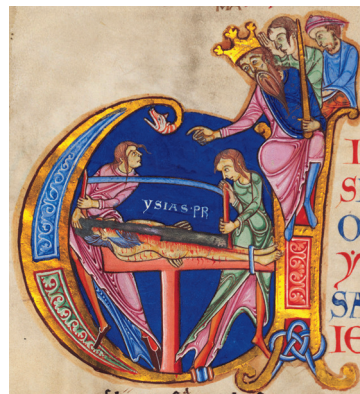 YSIAS·PR
I
SI
O
Y
SA
IE